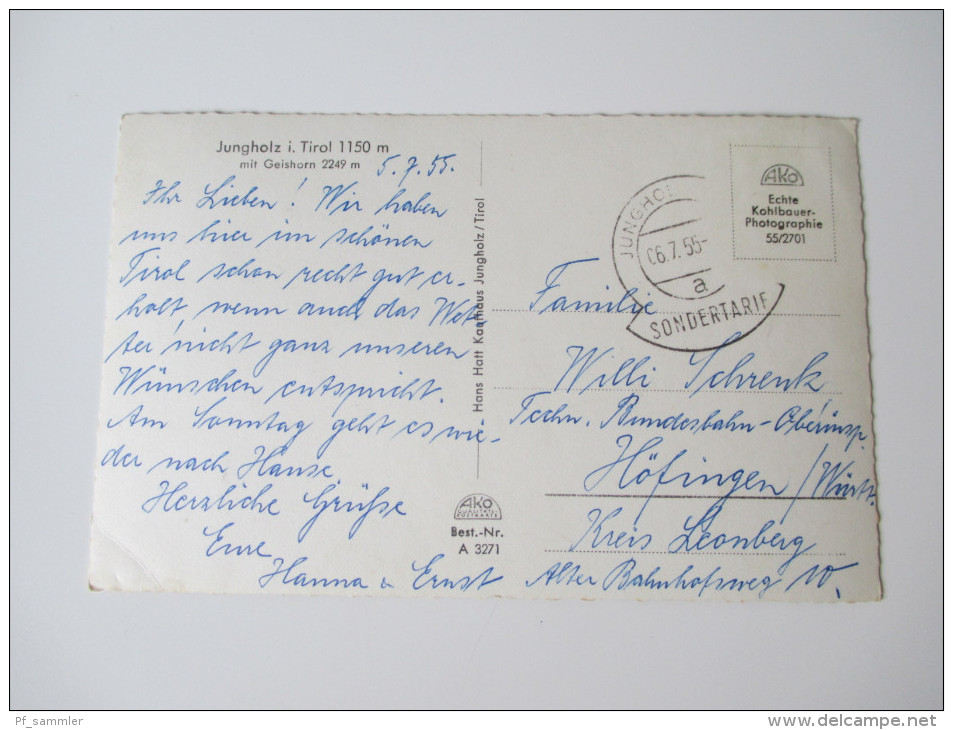 Jungholz i. Tirol 1150 m
mit Geishorn 2249 m
5.7.55.
Ihr Lieben! Wir haben
uns hier im schönen
Tirol schon recht gut er-
holt, wenn auch das Wet-
ter nicht ganz unseren
Wünschen entspricht.
Am Sonntag geht es wie-
der nach Hause.
Herzliche Grüße
Eure
Hanna u Ernst
Hans Hatt Kaufhaus Jungholz/Tirol
AKO
Best.-Nr.
A 3271
JUNGHOL
06.7.55-
a
SONDERTARIF
AKO
Echte
Kohlbauer-
Photographie
55/2701
Familie
Willi Schrenk
Techn. Bundesbahn-Oberinsp.
Höfingen/Württ.
Kreis Leonberg
Alter Bahnhofsweg 10.
Pf_sammler
www.delcampe.net